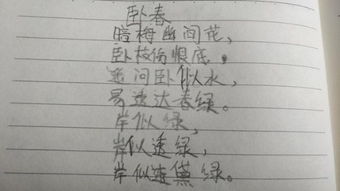 卧春
暗梅幽闻花,
卧枝伤恨底,
遥问卧似水,
易透达春绿。
岸似绿,
岸似透绿,
岸似透黛绿。